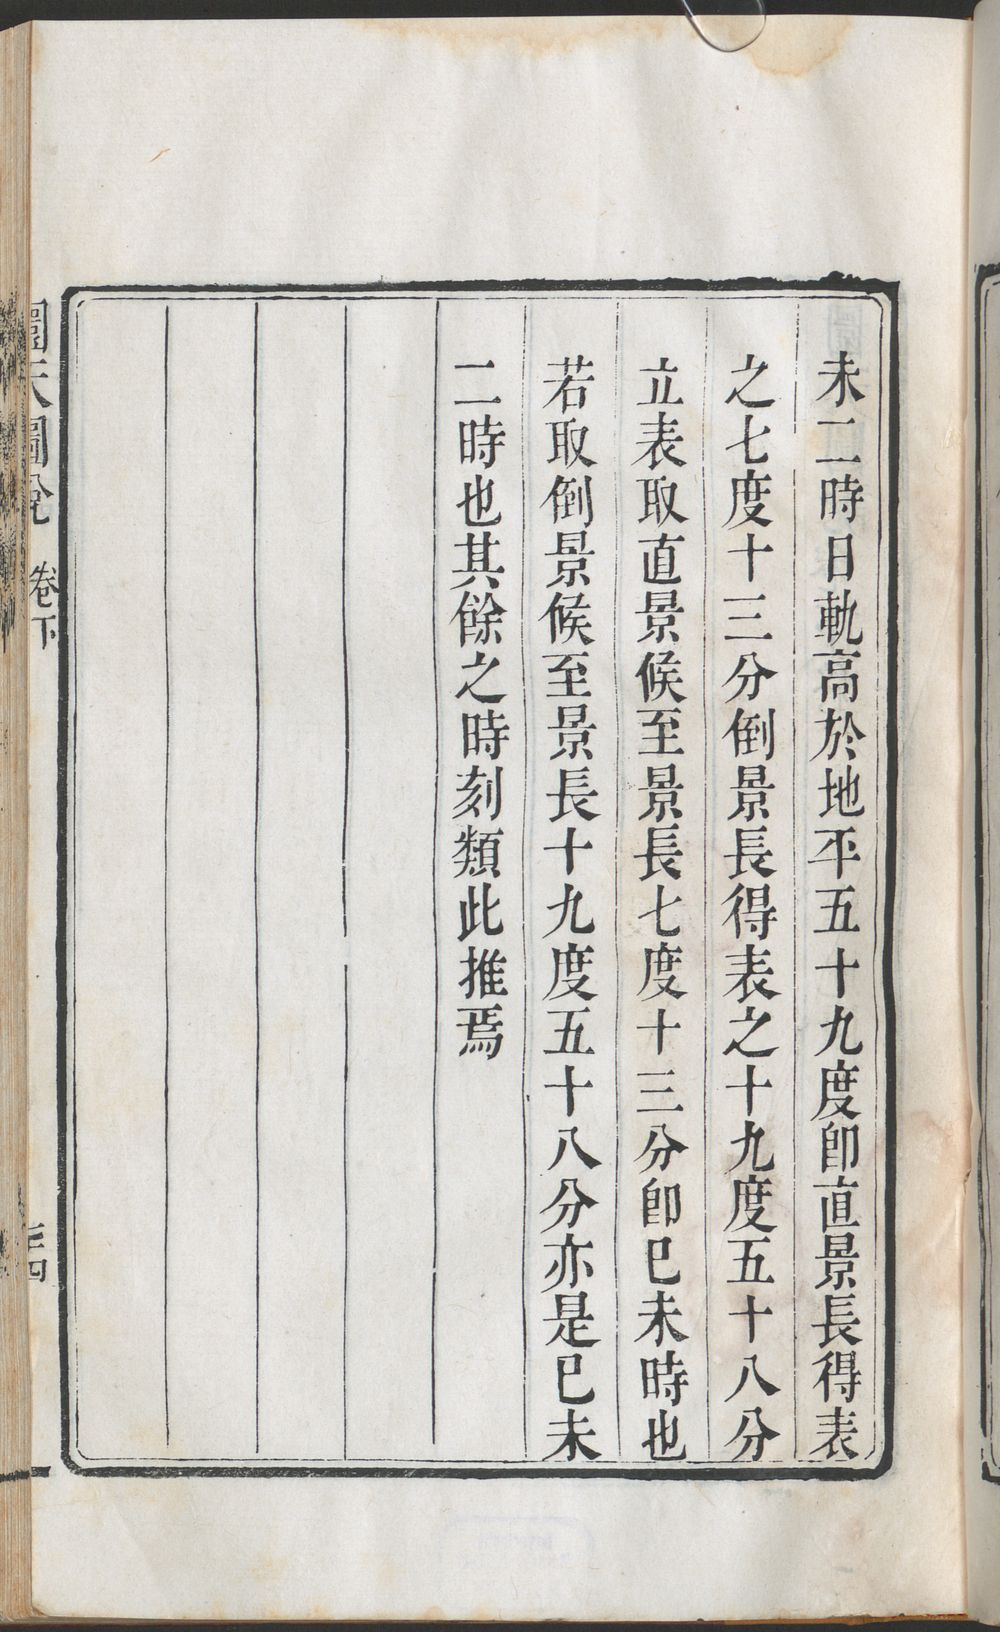 未二時日軌高於地平五十九度卽直景長得表
之七度十三分倒景長得表之十九度五十八分
立表取直景候至景長七度十三分卽巳未時也
若取倒景候至景長十九度五十八分亦是巳未
二時也其餘之時刻類此推焉
圜天圖說 卷下